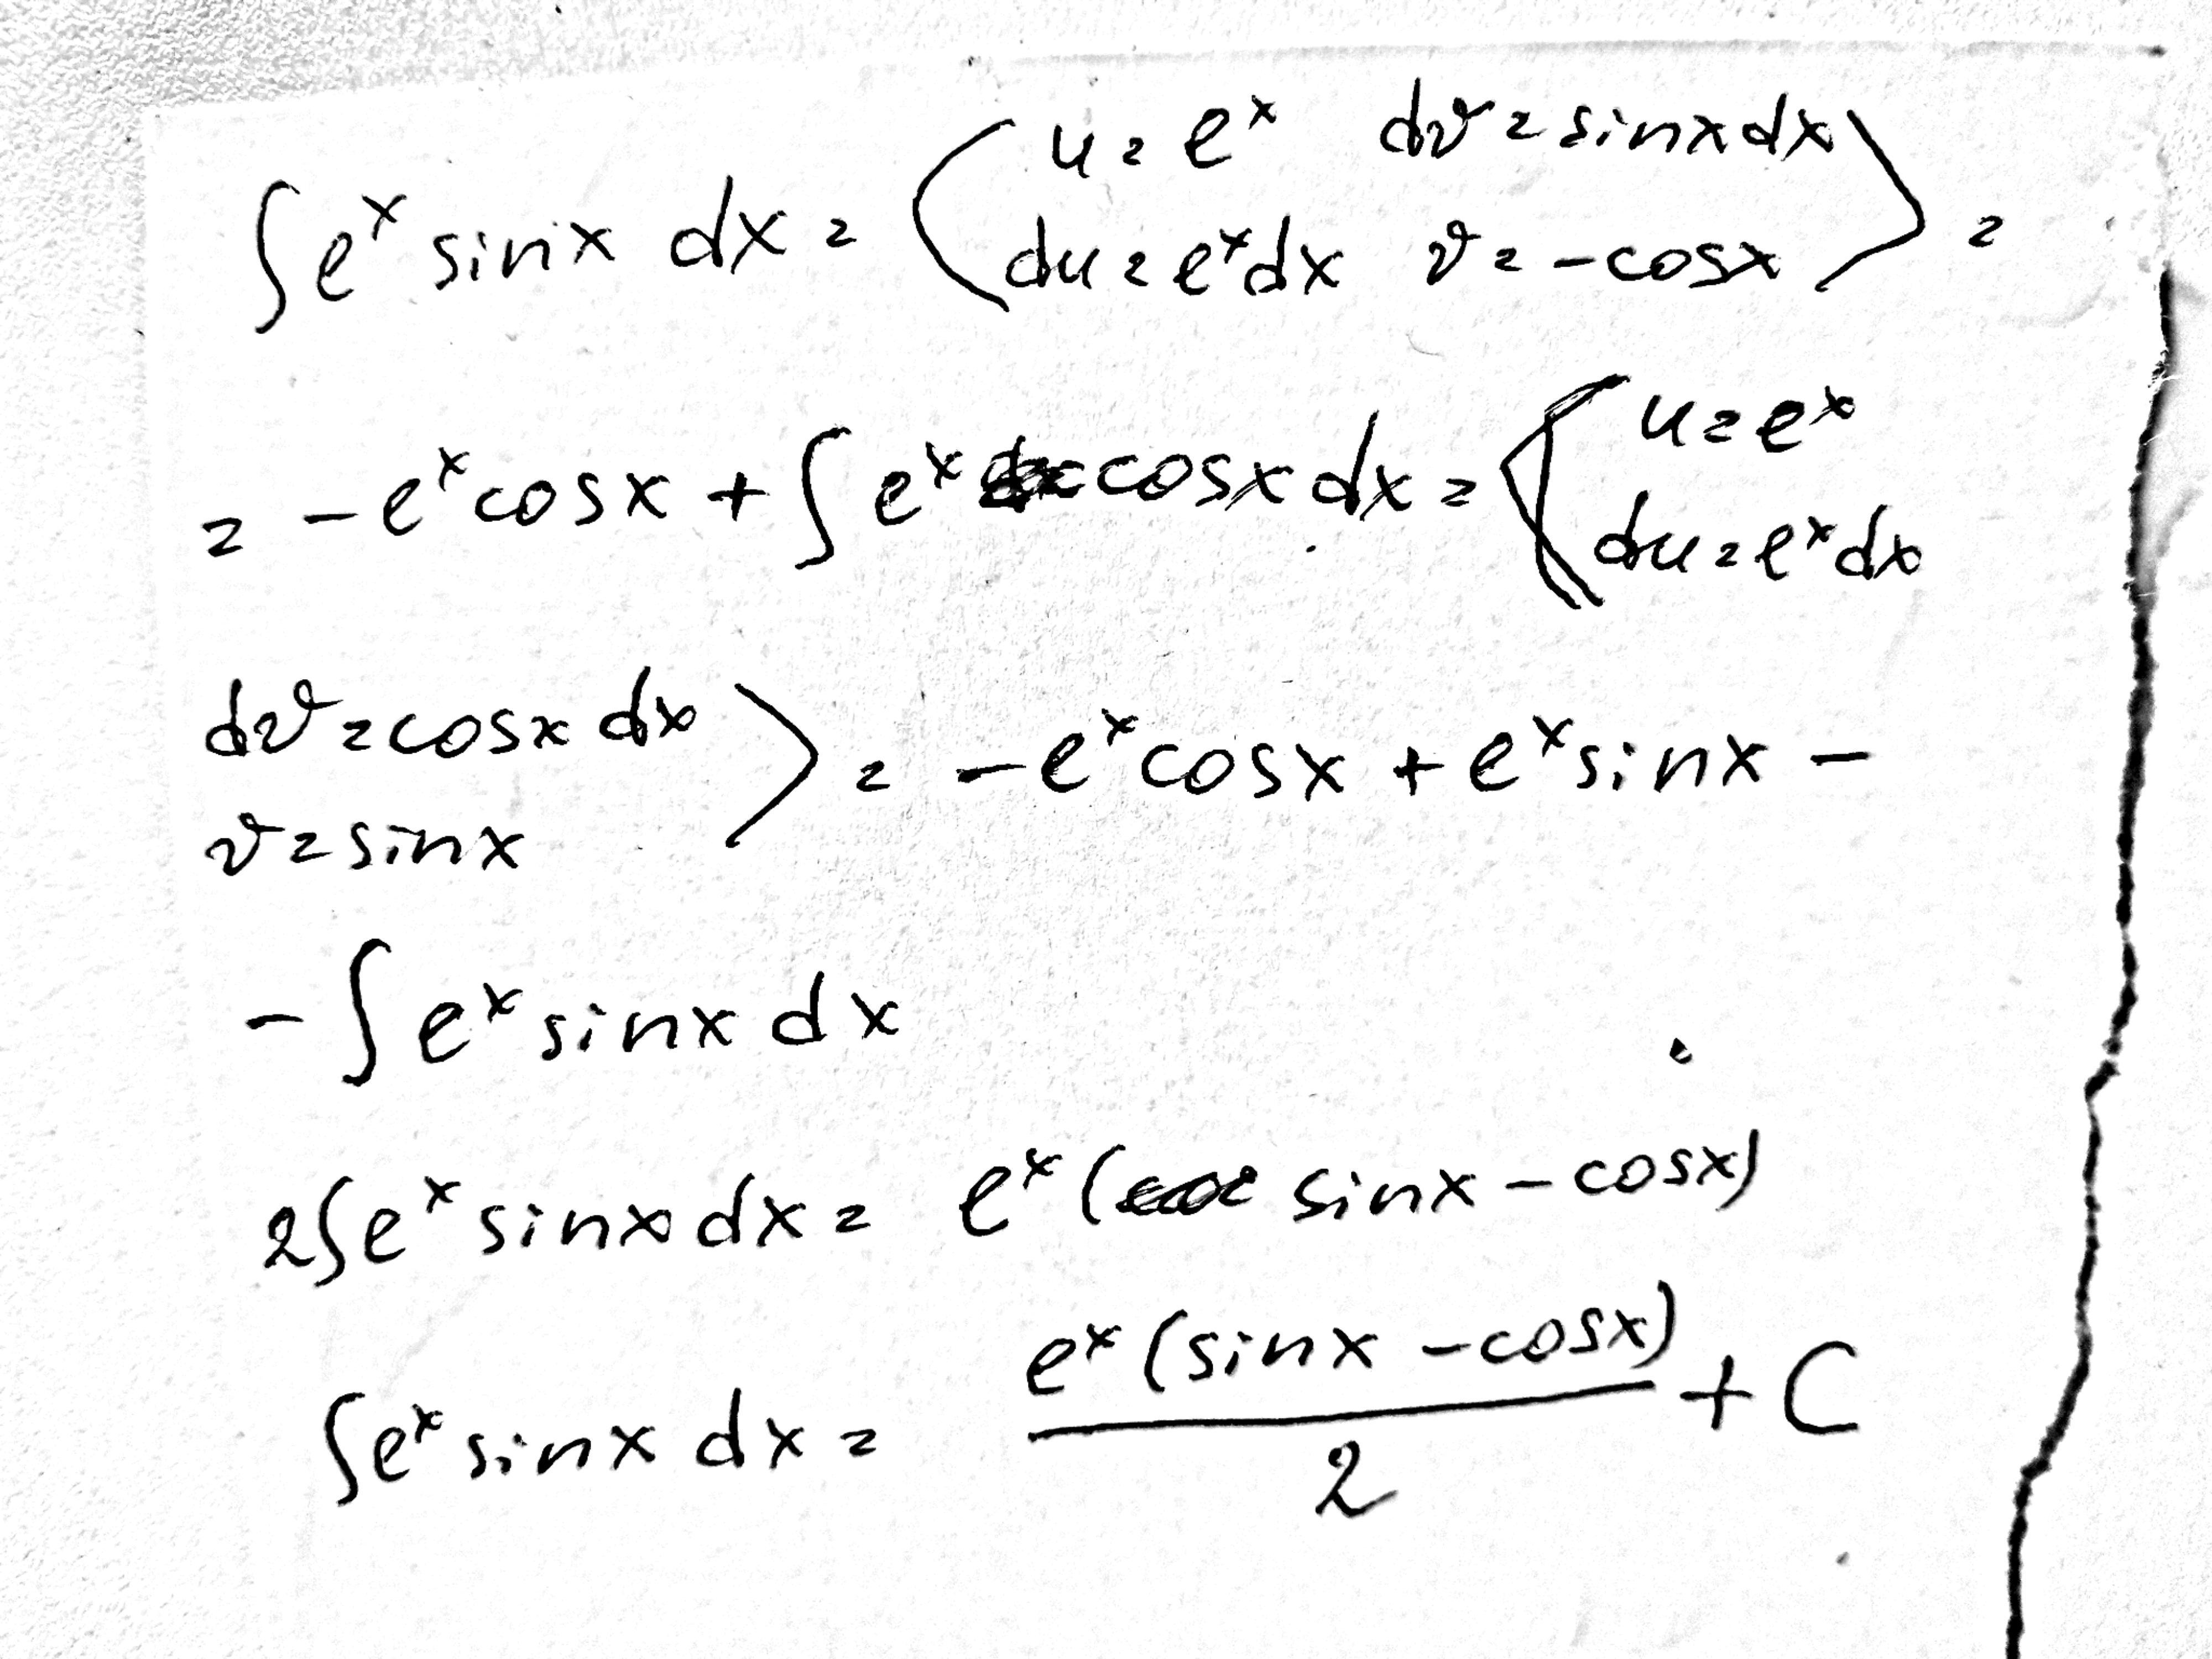 ∫e^x sinx dx = ⟨ u = e^x   dv = sinx dx
du = e^x dx   v = -cosx ⟩ =
= -e^x cosx + ∫e^x cosx dx = ⟨ u = e^x
du = e^x dx
dv = cosx dx ⟩ = -e^x cosx + e^x sinx -
v = sinx
- ∫e^x sinx dx
2∫e^x sinx dx = e^x (sinx - cosx)
∫e^x sinx dx = e^x (sinx - cosx) / 2 + C